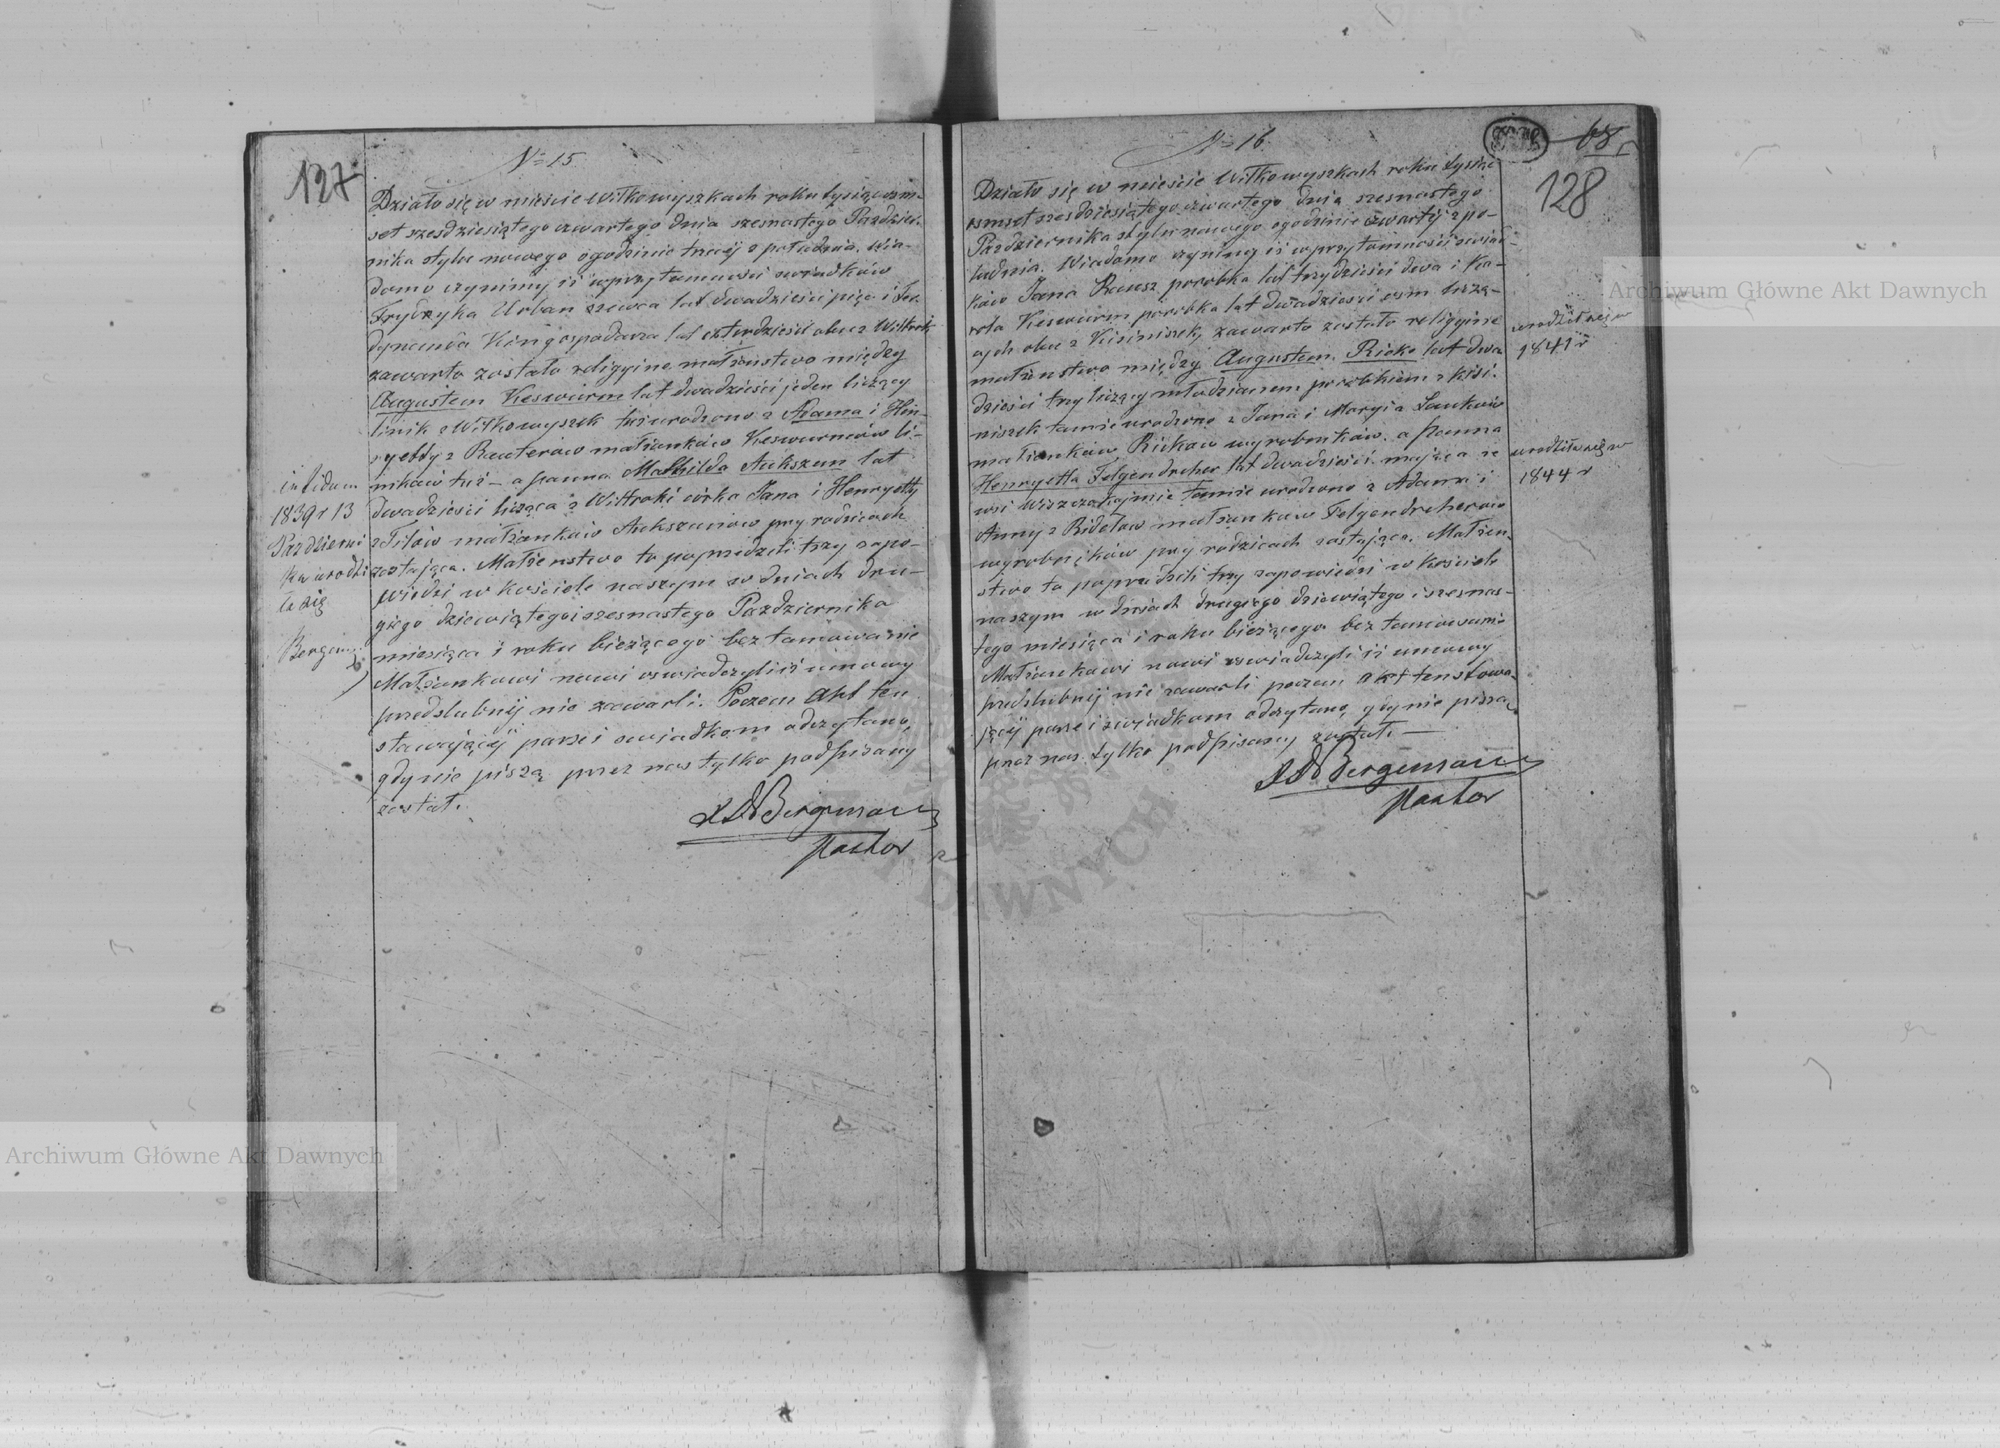 127
N= 15
Działo się w mieście Wiłkowyszkach roku tysiąc osm-
set szesdziesiątego czwartego dnia szesnastego Pazdzier-
nika stylu nowego o godzinie trzeciej z południa. Wia-
domo czynimy iż w przytomności swiadków
Frydryka Urban szewca lat dwadzieścia pięć i Fer-
dynanda King gospodarza lat czterdzieści obu z
zawarte zostało religijne małżeństwo między
Augustem Keswurm lat dwadzieścia jeden liczący
z Wiłkowyszek tu urodzony z Adama i Hen-
ryetty z Reuterów małżonków Keswurmów
tu – a panną Mathilda Aukszun lat
dwadzieścia licząca z córka Jana i Henryetty
z małżonków Aukszunów przy rodzicach
zostająca. Małżenstwo to poprzedziły trzy zapo-
wiedzi w kościele naszym w dniach dru-
giego dziewiątego i szesnastego Pazdziernika
miesiąca i roku bieżącego bez tamowanie
Małżonkowi nowi oswiadczyli iż umowy
przedslubnij nie zawarli. Poczem Akt ten
stawającej parze i swiadkom odczytano,
gdy nie piszą przez nas tylko podpisany
został.
Bergmann
Pastor
in fidem
1839 r 13
Pazdzierni
ka urodzi
ła się
Bergm
N= 16
68
128
Działo się w mieście Wiłkowyszkach roku tysiąc
osmset szesdziesiątego czwartego dnia szesnastego
Pazdziernika stylu nowego o godzinie czwartej z po-
ludnia. Wiadomo czynimy iż w przytomności swiad-
ków Jana Reusz parobka lat trzydzieści dwa i Ka-
rola Keswurm parobka lat dwadzieścia osm liczą-
cych obu z zawarte zostało religijne
małżenstwo między Augustem Ricke lat dwa-
dzieścia trzy liczący młodzianem parobkiem z Kisi-
niszek tamie urodzony z Jana i Maryi z
małżonków Rickow wyrobników, a panną
Henryetta Felgendreher lat dwadzieścia mająca ze
wsi tamie urodzona z Adama i
Anny z małżonków Felgendreherow
wyrobników przy rodzicach zostająca. Małżen-
stwo to poprzedzili trzy zapowiedzi w kościele
naszym w dniach drugiego dziewiątego i szesnas-
tego miesiąca i roku bieżącego bez tamowani
Małżonkowi nowi oswiadczyli iż umowy
przedslubnij nie zawarli poczem akt ten stawa-
jącej parze i swiadkom odczytano, gdy nie piszą
przez nas tylko podpisany został. —
Bergmann
Pastor
urodził się w
1841 r
urodziła się w
1844 r
Archiwum Główne Akt Dawnych
Archiwum Główne Akt Dawnych
DAWNYCH